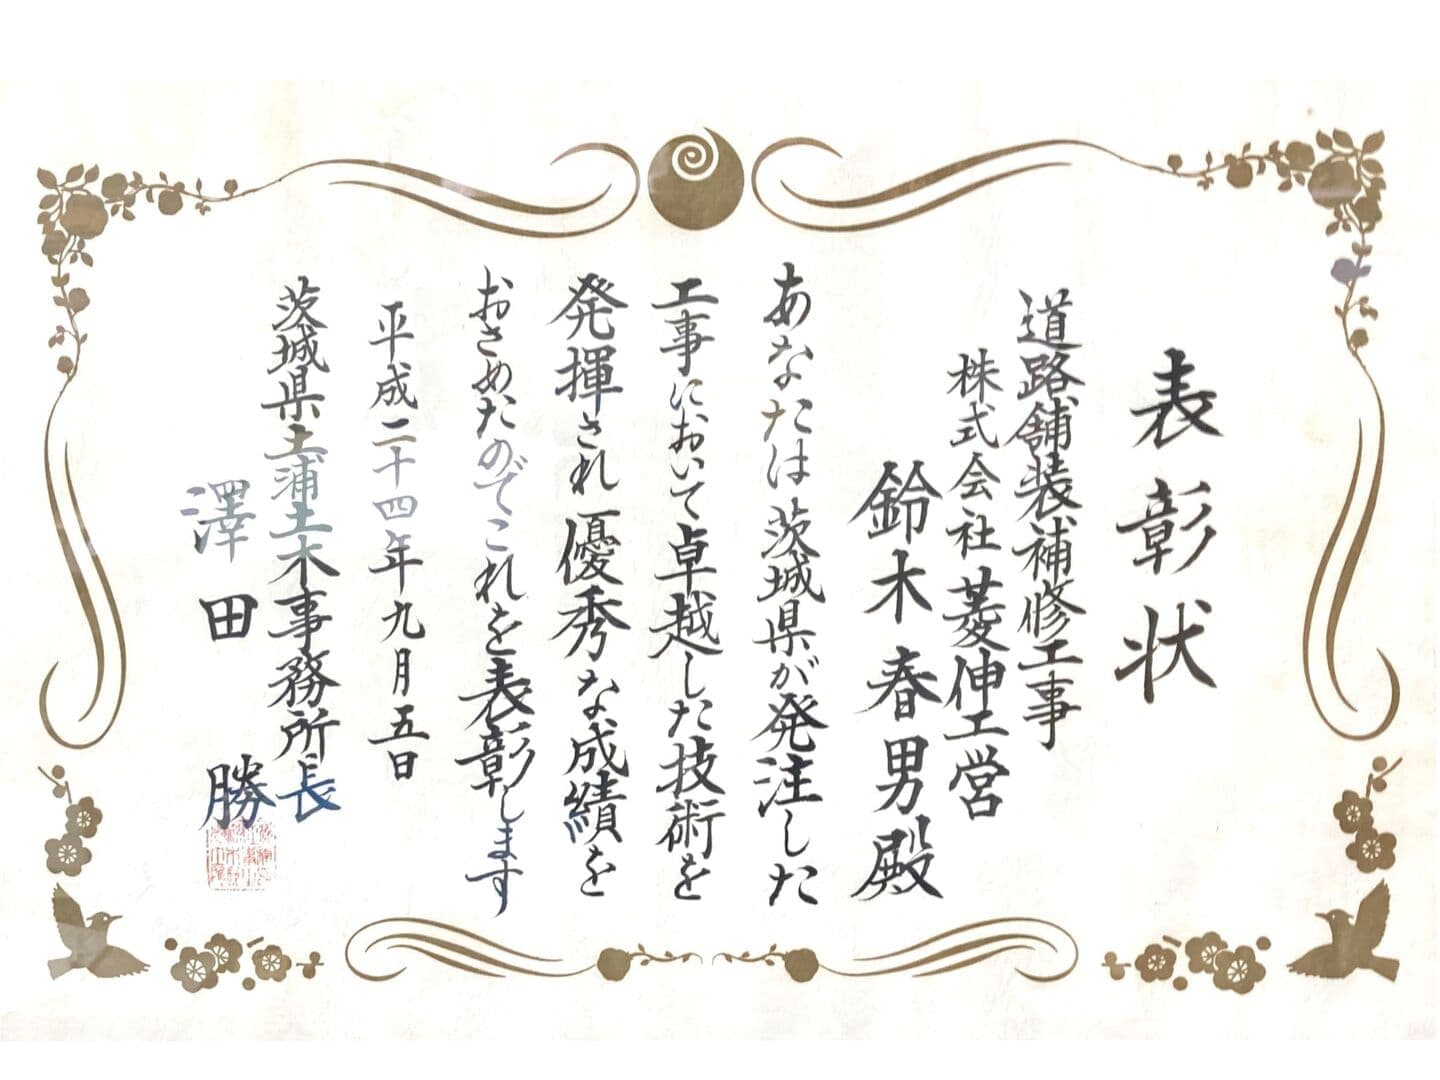 表彰状
道路舗装補修工事
株式会社菱伸工営
鈴木春男殿
あなたは茨城県が発注した
工事において卓越した技術を
発揮され優秀な成績を
おさめたのでこれを表彰します
平成二十四年九月五日
茨城県土浦土木事務所長
澤田勝